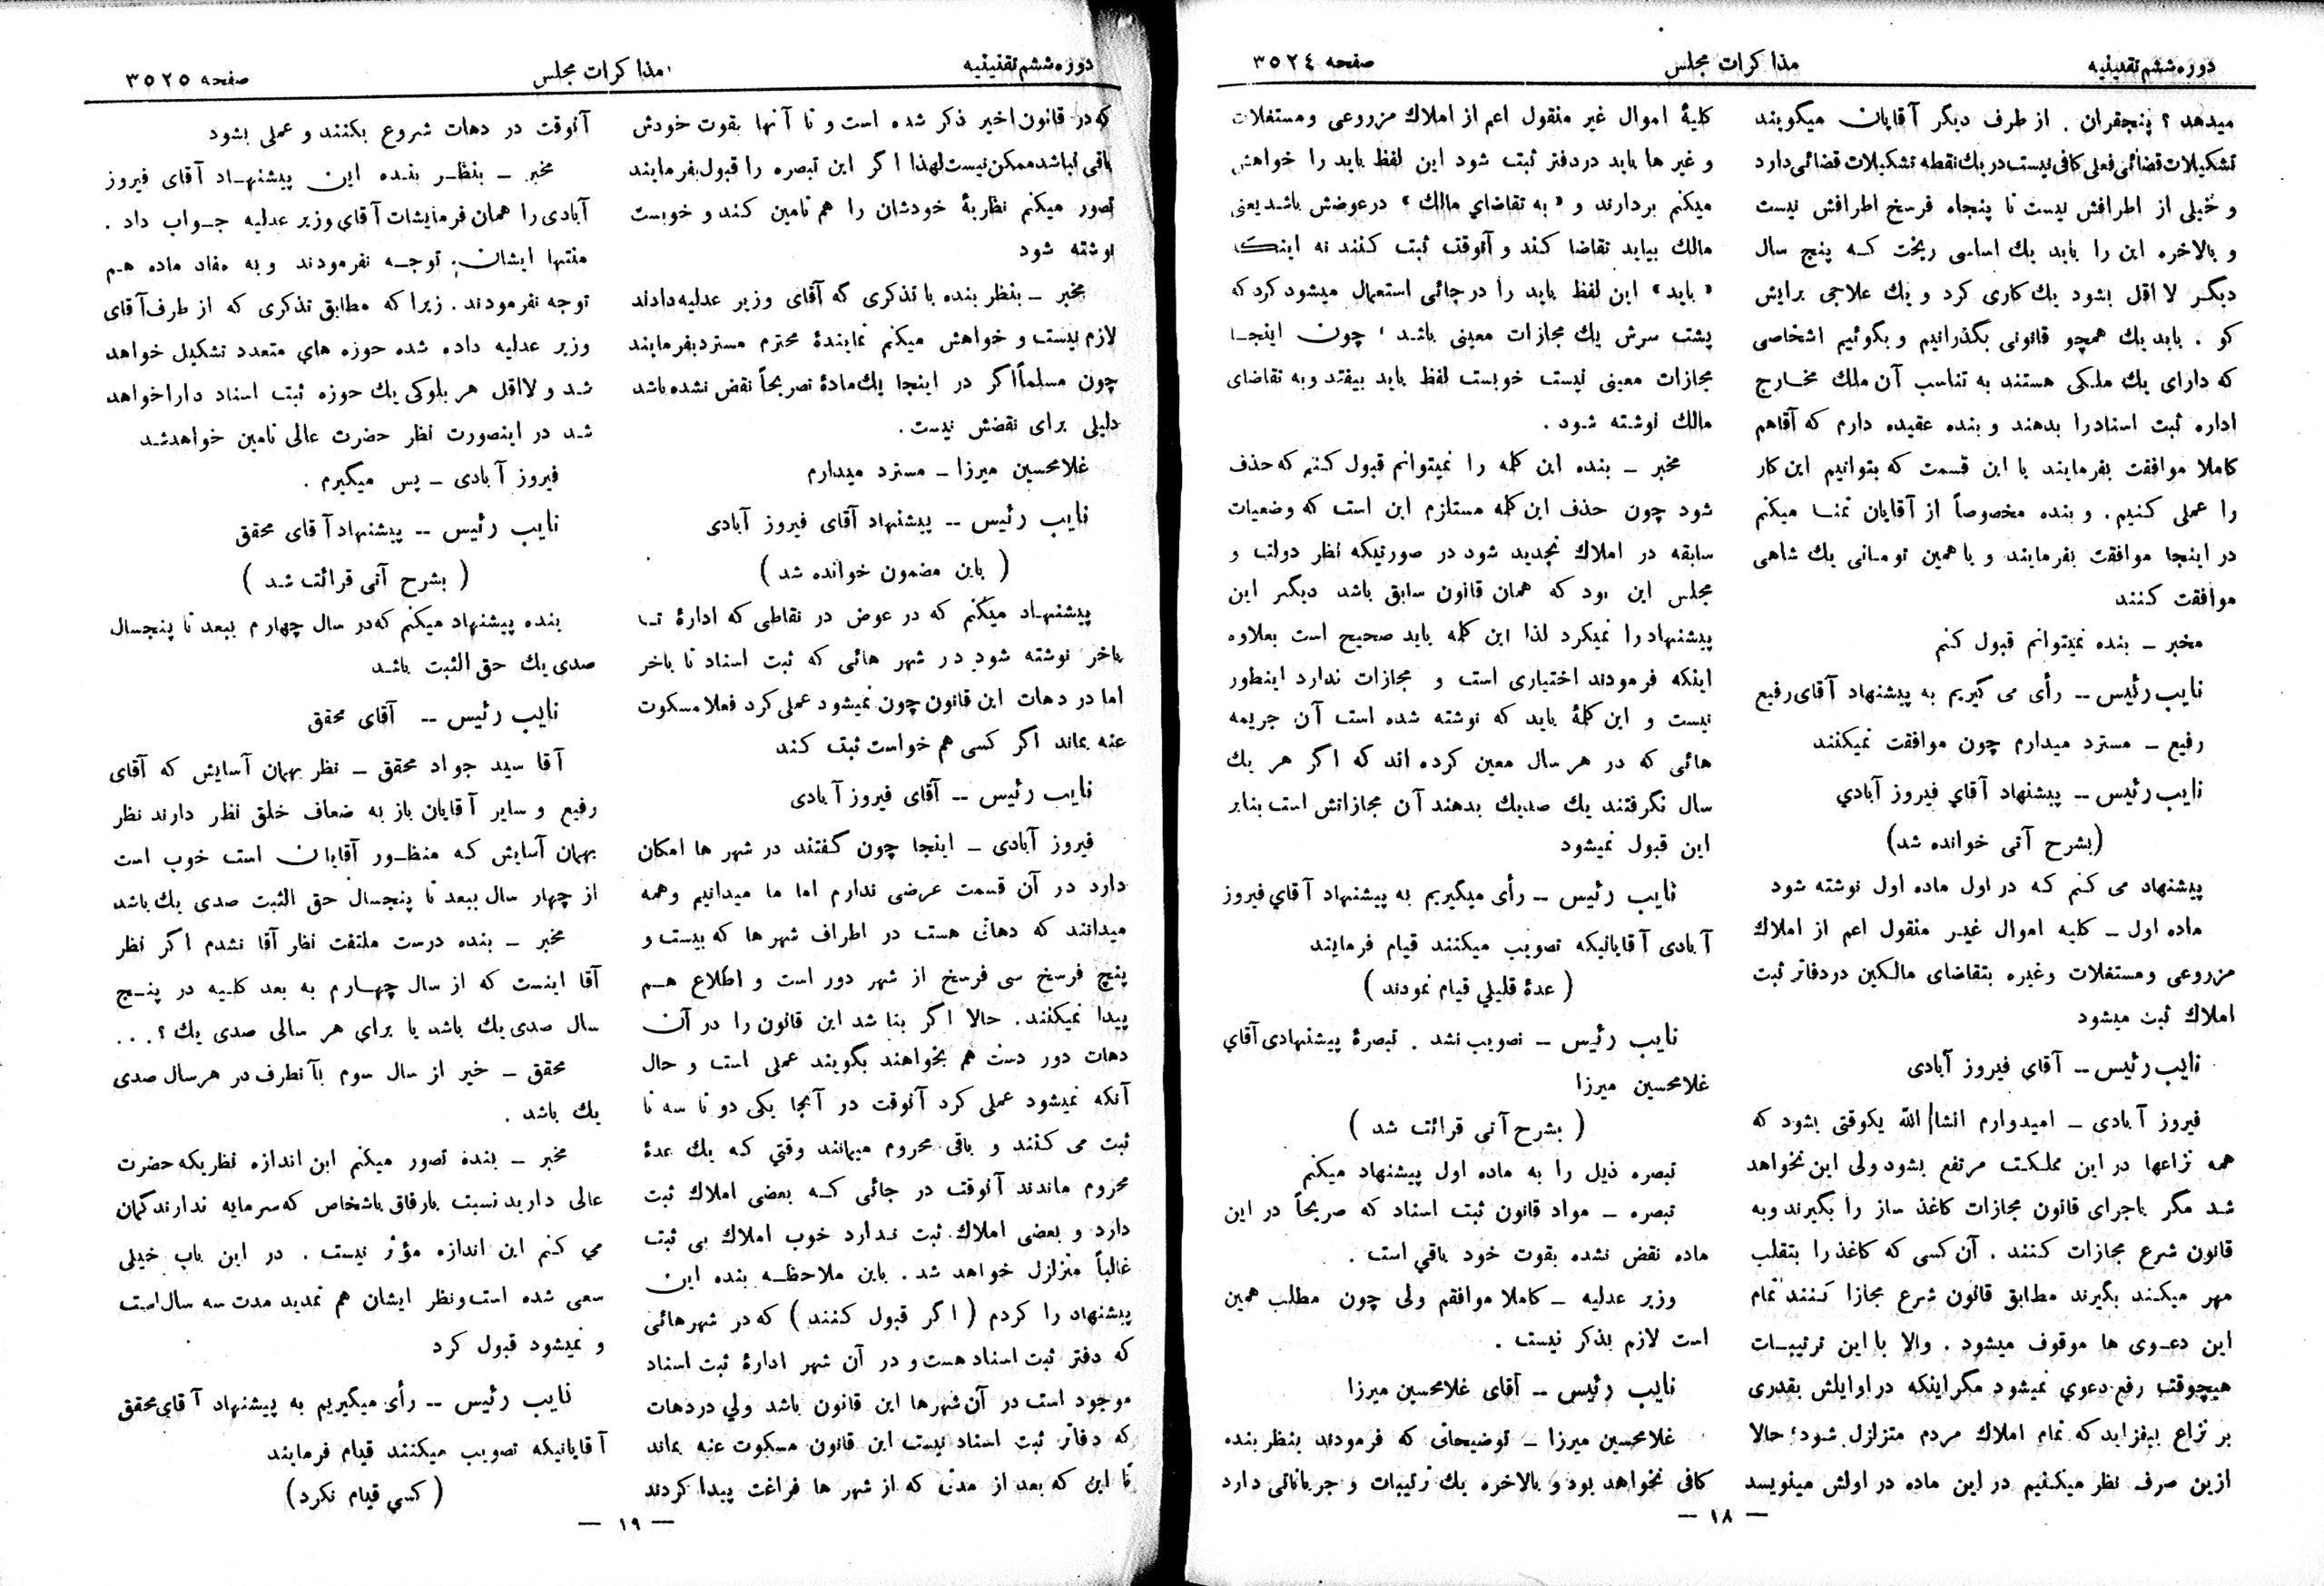 دوره ششم تقنینیه
مذاکرات مجلس
صفحه ۳۵۲٤
میدهد ؟ پنجقران . از طرف دیگر آقایان میگویند
تشکیلات قضائی فعلی کافی نیست در یك نقطه تشکیلات قضائی دارد
و خیلی از اطرافش نیست تا پنجاه فرسخ اطرافش نیست
و بالاخره این را باید یك اساسی ریخت کـه پنج سال
دیگـر لا اقل بشود یك کاری کرد و یك علاجی برایش
کو . باید یك همچو قانونی بگذرانیم و بگوئیم اشخاصی
که دارای یك ملـکی هستند به تناسب آن ملك مخـارج
اداره ثبت اسنادرا بدهند و بنده عقیده دارم که آقاهم
کاملا موافقت بفرمایند با این قسمت که بتوانیم این کار
را عملی کنیم . و بنده مخصوصاً از آقایان تمنـا میکنم
در اینجا موافقت بفرمایند و با همین تومـانی یك شاهی
موافقت کنند
مخبر ـ بنده نمیتوانم قبول کنم
نایب رئیس -- رأی می گیریم به پیشنهاد آقای رفیع
رفیع ـ مسترد میدارم چون موافقت نمیکنند
نایب رئیس -- پیشنهاد آقاي فیروز آبادي
(بشرح آتی خوانده شد)
پیشنهاد می کنم کـه در اول ماده اول نوشته شود
ماده اول ـ کلیه اموال غیـر منقول اعم از املاك
مزروعی و مستغلات وغیره بتقاضای مالـکین در دفاتر ثبت
املاك ثبت میشود
نایب رئیس -- آقای فیروز آبادی
فیروز آبادی ـ امیدوارم انشاالله یکوقتی بشود که
همه نزاعها در این مملـکت مرتفع بشود ولی این نخواهد
شد مگر باجرای قانون مجازات کاغذ ساز را بگیرند وبه
قانون شرع مجازات کنند . آن کسی که کاغذ را بتقلب
مهر میکـند بگیرند مطابق قانون شرع مجازا کـنند تمام
این دعـوی ها موقوف میشود . والا با این ترتیبـات
هیچوقت رفع دعوي نمیشود مگر اینکه در اوایلش بقدری
بر نزاع بیفزاید که تمام املاك مردم متزلزل شود؛ حالا
ازین صرف نظر میکـنیم در این ماده در اولش مینویسد
کلیهٔ اموال غیر منقول اعم از املاك مزروعی ومستغلات
و غیر ها باید در دفتر ثبت شود این لفظ باید را خواهش
میکنم بردارند و «به تقاضاي مالك» در عوضش باشد یعنی
مالك بیاید تقاضا کند و آنوقت ثبت کنند نه اینکه
«باید» این لفظ باید را در جائی استعمال میشود کرد که
پشت سرش یك مجازات معینی باشـد ، چون اینجـا
مجازات معینی نیست خوبست لفظ باید بیفتد و به تقاضای
مالك نوشـته شود .
مخبر ـ بنده این کلمه را نمیتوانم قبول کـنم که حذف
شود چون حذف این کلمه مستلزم این است که وضعیات
سابقه در املاك تجدید شود در صورتیکه نظر دولت و
مجلس این بود که همان قانون سابق باشد دیگـر این
پیشنهاد را نمیکرد لذا این کلمه باید صحیح است بعلاوه
اینکه فرمودند اختیاری است و مجازات ندارد اینطور
نیست و این کلمهٔ باید که نوشته شده است آن جریمه
هائی که در هر سال معین کرده اند که اگر هر یك
سال نگرفتند یك صدیك بدهند آن مجازاتش است بنابر
این قبول نمیشود
نایب رئیس -- رأی میگیریم به پیشنهاد آقاي فیروز
آبادی آقایانیکه تصویب میکنند قیام فرمایند
(عدهٔ قلیلي قیام نمودند)
نایب رئیس ـ تصویب نشد . تبصرهٔ پیشنهادی آقاي
غلامحسین میرزا
(بشرح آتی قرائت شد)
تبصره ذیل را به ماده اول پیشنهاد میکنم
تبصره ـ مواد قانون ثبت اسناد که صریحاً در این
ماده نقض نشده بقوت خود باقي است .
وزیر عدلیه ـ کاملا موافقم ولی چون مطلب همین
است لازم بذکر نیست .
نایب رئیس -- آقای غلامحسین میرزا
غلامحسین میرزا ـ توضیحاتی که فرمودند بنظر بنده
کافی نخواهد بود و بالاخره یك ترتیبات و جریاناتی دارد
— ۱۸ —
دوره ششم تقنینیه
مذاکرات مجلس
صفحه ۳۵۲۵
که در قانون اخیر ذکر شده است و تا آنها بقوت خودش
باقی نباشد ممکن نیست لهذا اگر این تبصره را قبول بفرمایند
تصور میکنم نظریهٔ خودشان را هم تامین کند و خوبست
نوشته شود
مخبر ـ بنظر بنده با تذکری که آقای وزیر عدلیه دادند
لازم نیست و خواهش میکنم نمایندهٔ محترم مسترد بفرمایند
چون مسلماً اگر در اینجا یك مادهٔ تصریحاً نقض نشده باشد
دلیلی برای نقضش نیست .
غلامحسین میرزا ـ مسترد میدارم
نایب رئیس -- پیشنهاد آقای فیروز آبادی
(باین مضمون خوانده شد)
پیشنهـاد میکنم که در عوض در نقاطی که ادارهٔ تـا
باخر نوشته شود در شهر هائی که ثبت اسناد تا باخر
اما در دهات این قانون چون نمیشود عملی کرد فعلا مسکوت
عنه بماند اگر کسی هم خواست ثبت کند
نایب رئیس -- آقای فیروز آبادی
فیروز آبادی ـ اینجا چون گفتند در شهر ها امکان
دارد در آن قسمت عرضی ندارم اما ما میدانیم وهمه
میدانند که دهاتی هست در اطراف شهر ها که بیست و
پنج فرسخ سی فرسخ از شهر دور است و اطلاع هـم
پیدا نمیکنند . حالا اگر بنا شد این قانون را در آن
دهات دور دست هم بخواهند بگویند عملی است و حال
آنکه نمیشود عملی کرد آنوقت در آنجا یکی دو تا سه تا
ثبت می کنند و باقی محروم میمانند وقتي که یك عدهٔ
محروم ماندند آنوقت در جائی کـه بعضی املاك ثبت
دارد و بعضی املاك ثبت نـدارد خوب املاك بی ثبت
غالباً متزلزل خواهد شد . باین ملاحظـه بنده این
پیشنهاد را کردم (اگر قبول کنند) که در شهرهائی
که دفتر ثبت اسناد هست و در آن شهر ادارهٔ ثبت اسناد
موجود است در آن شهرها این قانون باشد ولي در دهات
که دفاتر ثبت اسناد نیست این قانون مسکوت عنه بماند
تا این که بعد از مدتی که از شهر ها فراغت پیدا کردند
آنوقت در دهات شروع بکنند و عملی بشود
مخبر ـ بنظـر بنده این پیشنهـاد آقای فیروز
آبادی را همان فرمایشات آقای وزیر عدلیه جـواب داد .
منتها ایشان توجـه نفرمودند وبه مفاد ماده هـم
توجه نفرمودند . زیرا که مطابق تذکری که از طرف آقای
وزیر عدلیه داده شده حوزه هاي متعدد تشکیل خواهد
شـد و لااقل هر بلوکی یك حوزه ثبت اسناد دارا خواهد
شـد در اینصورت نظر حضرت عالی تامین خواهدشـد
فیروز آبادی ـ پس میگیرم .
نایب رئیس -- پیشنهاد آقای محقق
(بشرح آتی قرائت شد)
بنده پیشنهاد میکنم که در سال چهارم ببعد تا پنجسال
صدی یك حق الثبت باشـد
نایب رئیس -- آقای محقق
آقا سید جواد محقق ـ نظر بهمان آسایش که آقای
رفیع و سایر آقایان باز به ضعاف خلق نظر دارند نظر
بهمان آسایش کـه منظـور آقایان است خوب است
از چهار سال ببعد تا پنجسال حق الثبت صدی یك باشد
مخبر ـ بنده درست ملتفت نظر آقا نشدم اگر نظر
آقا اینست که از سال چهـارم به بعد کلـیه در پنـج
سال صدی یك باشد یا برای هر سالی صدی یك ؟ . . .
محقق ـ خیر از سال سوم بآنطرف در هرسال صدی
یك باشد .
مخبر ـ بنده تصور میکنم این اندازه نظریکه حضرت
عالی دارید نسبت بارفاق باشخاص که سرمایه ندارند گمان
مي کنم این اندازه مؤثر نیست . در این باب خیلی
سعی شده است ونظر ایشان هم تمدید مدت سه سال است
و نمیشود قبول کرد
نایب رئیس -- رأی میگیریم به پیشنهاد آقای محقق
آقایانیکه تصویب میکنند قیام فرمایند
(کسي قیام نکرد)
— ۱۹ —